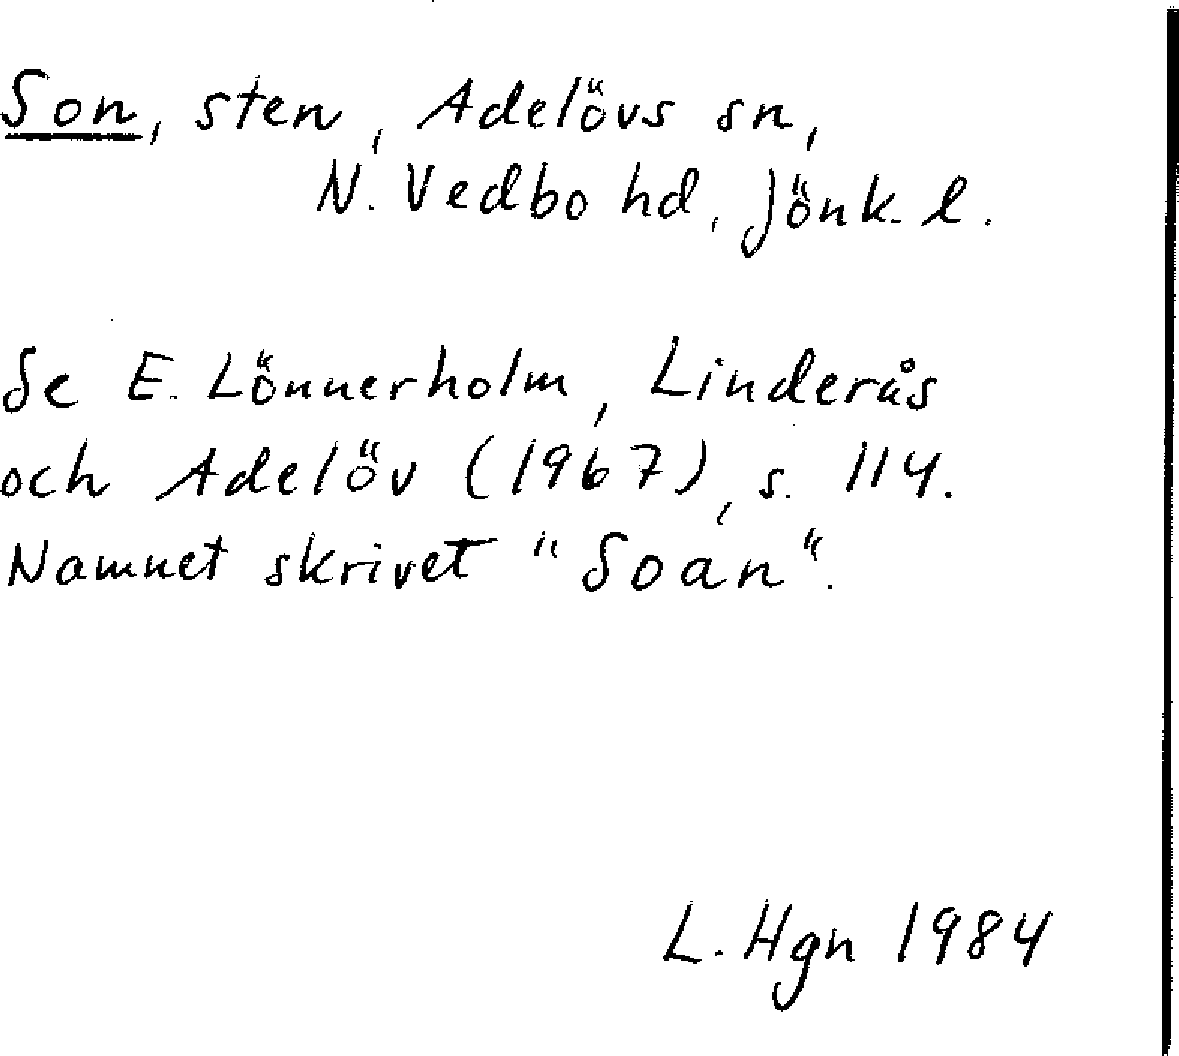 Son, sten, Adelövs sn,
N. Vedbo hd, Jönk. l.
Se E. Lönnerholm, Linderås
och Adelöv (1967), s. 114.
Namnet skrivet "Soan".
L. Hgn 1984